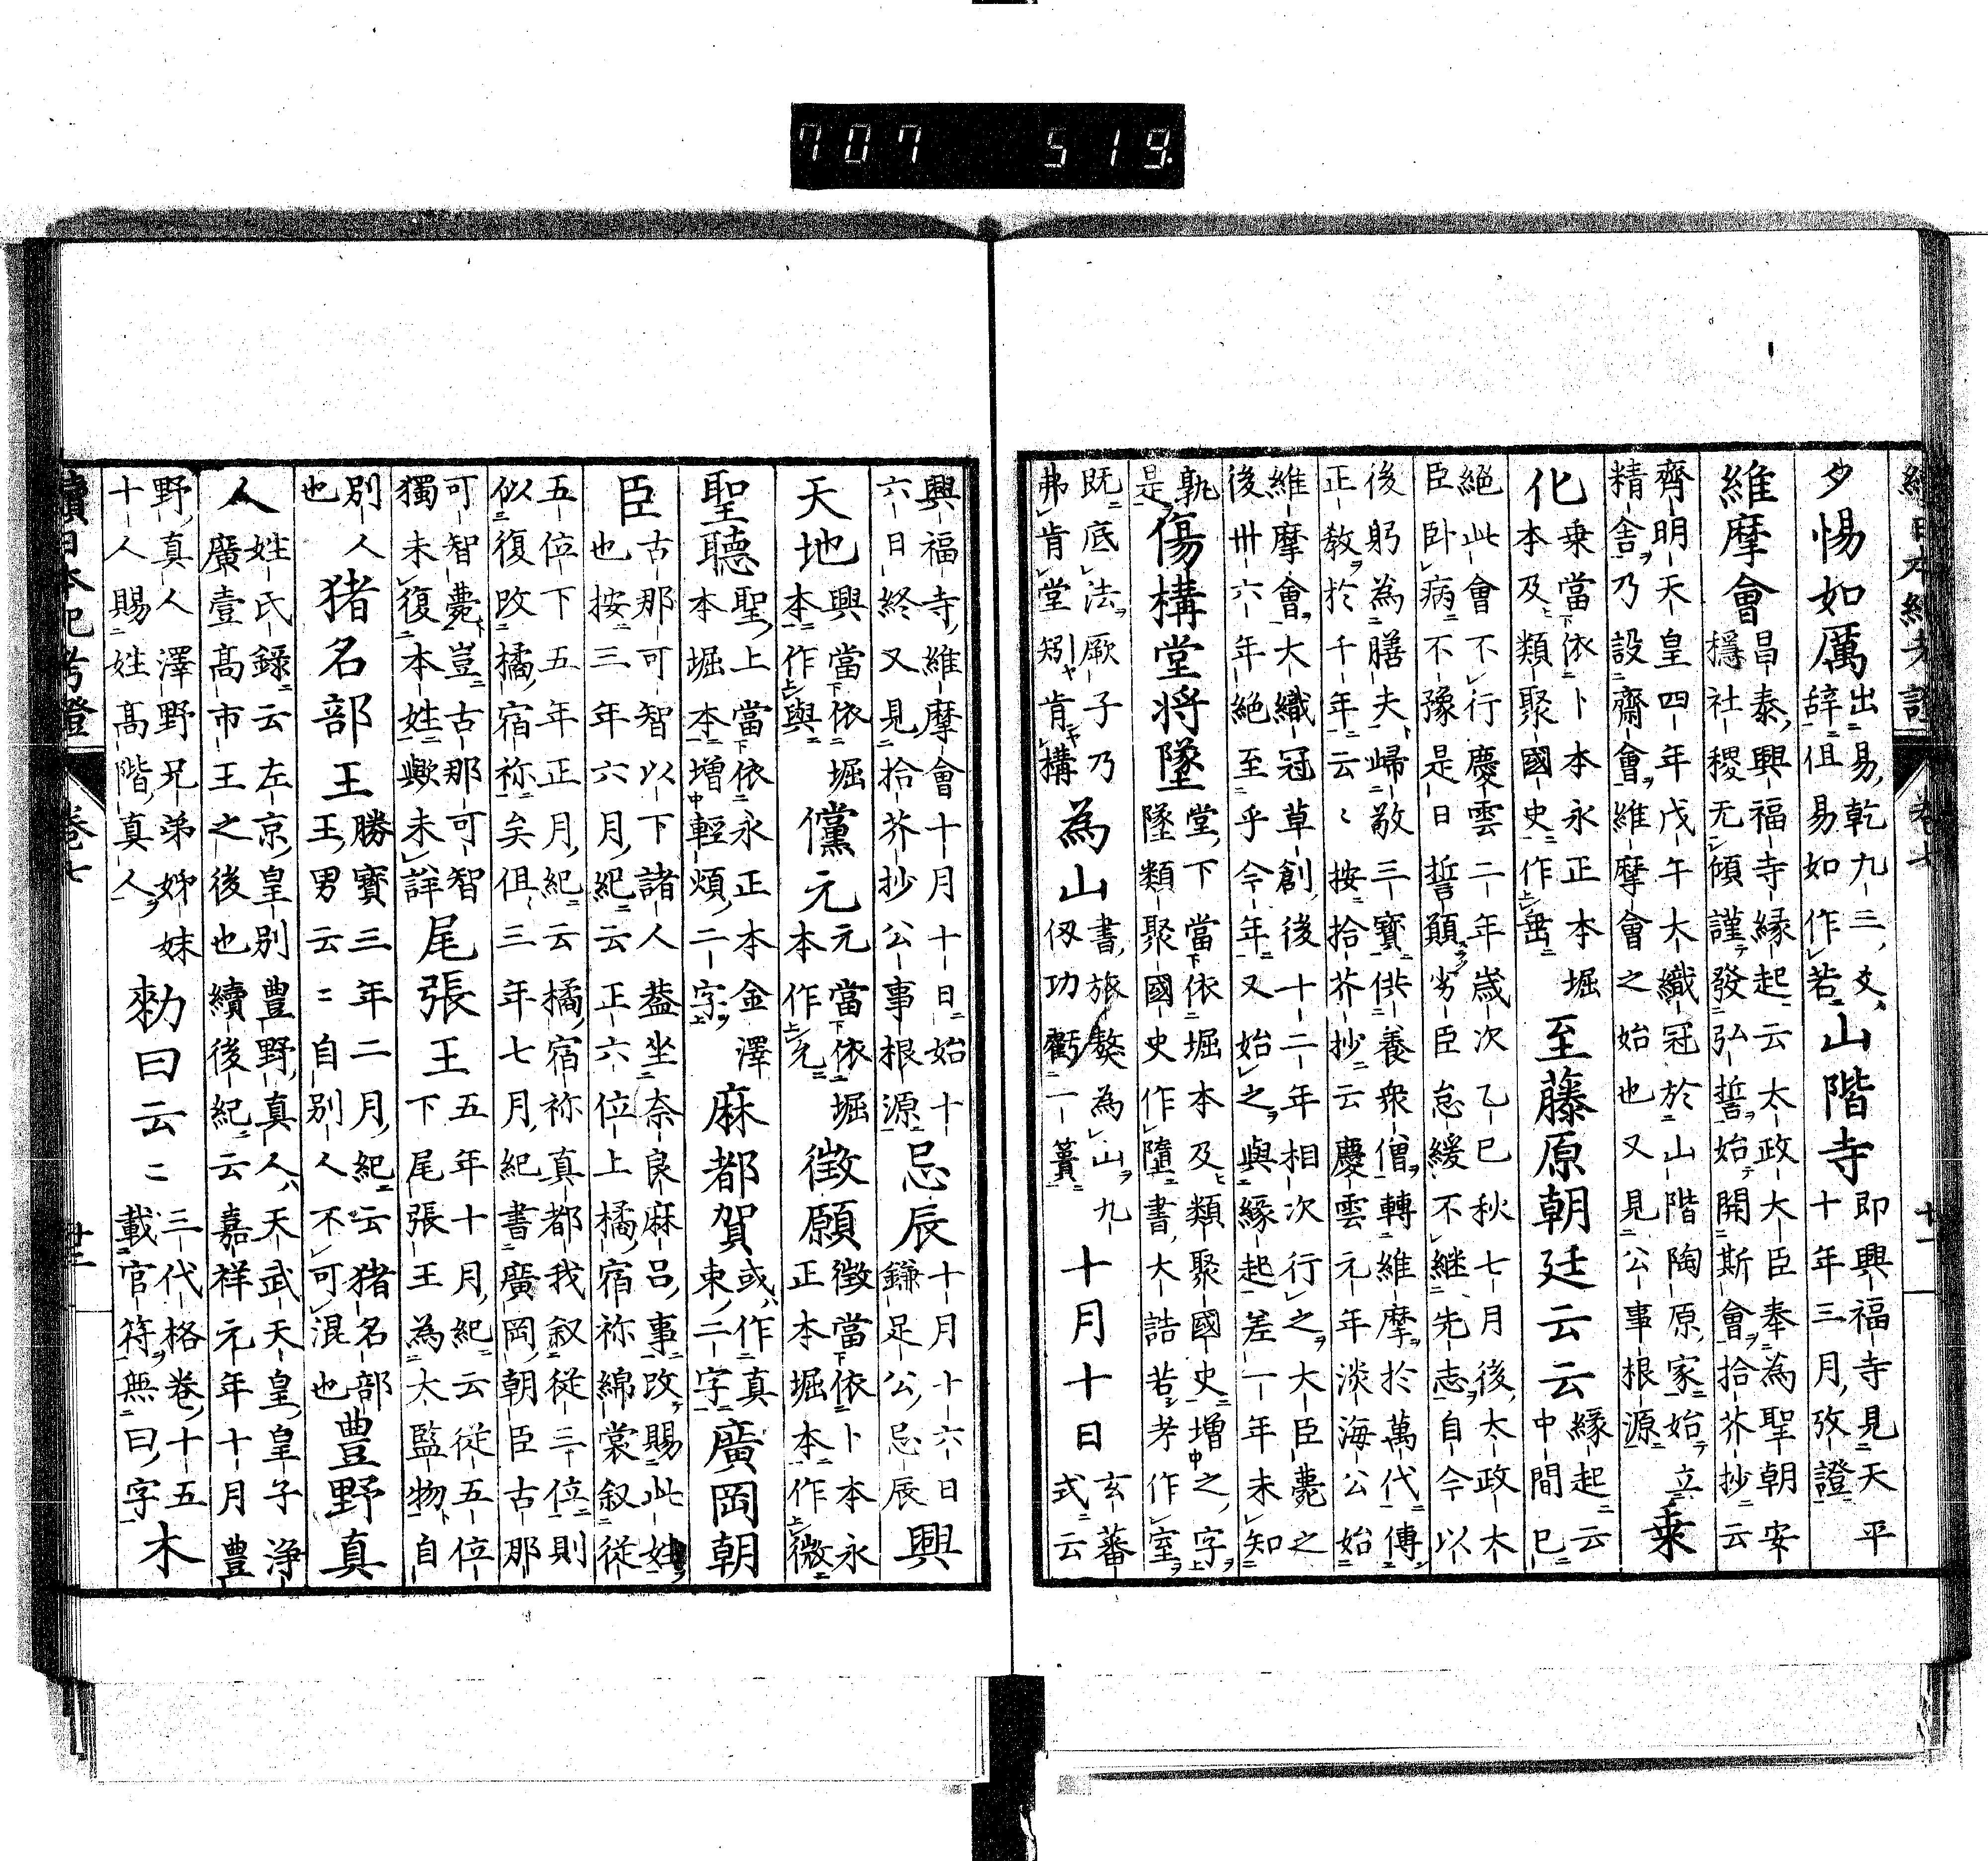 707 519.
續日本紀考證 卷七 十一
夕惕如厲出易乾九三爻辭但易如作若山階寺即興福寺見天平十年三月攷證
維摩會昌泰興福寺縁起云太政大臣奉為聖朝安穩社稷无傾謹發弘誓始開斯會拾芥抄云
齊明天皇四年戊午大織冠於山階陶原家始立精舎乃設齋會維摩會之始也又見公事根源乗
化乗當依卜本永正本堀本及類聚國史作垂至藤原朝廷云云縁起云中間已
絕此會不行慶雲二年歳次乙巳秋七月後太政大臣卧病不豫是日誓願劣臣怠緩不継先志自今以
後躬為膳夫歸敬三寶供養衆僧轉維摩於萬代傳正敎於千年云〻按拾芥抄云慶雲元年淡海公始
維摩會大織冠草創後十二年相次行之大臣薨之後卅六年絕至乎今年又始之與縁起差一年未知
孰是傷構堂將墜堂下當依堀本及類聚國史增之字墜類聚國史作墮書大誥若考作室
既底法厥子乃弗肯堂矧肯構為山書旅獒為山九仭功虧一簣十月十日玄蕃式云
興福寺維摩會十月十日始十六日終又見拾芥抄公事根源忌辰十月十六日鎌足公忌辰興
天地興當依堀本作與儻元元當依堀本作无徴願徴當依卜本永正本堀本作微
聖聽聖上當依永正本金澤本堀本增輕煩二字麻都賀或作真東二字廣岡朝
臣古那可智以下諸人蓋坐奈良麻呂事改賜此姓也按三年六月紀云正六位上橘宿祢綿裳叙從
五位下五年正月紀云橘宿祢真都我叙從三位則似復改橘宿祢矣但三年七月紀書廣岡朝臣古那
可智薨豈古那可智獨未復本姓歟未詳尾張王五年十月紀云從五位下尾張王為大監物自
別人也猪名部王勝寳三年二月紀云猪名部王男云二自別人不可混也豊野真
人姓氏録云左京皇別豊野真人天武天皇皇子浄廣壹髙市王之後也續後紀云嘉祥元年十月豊
野真人澤野兄弟姉妹十人賜姓髙階真人勑曰云二三代格卷十五載官符無曰字木
續日本紀考證 卷七